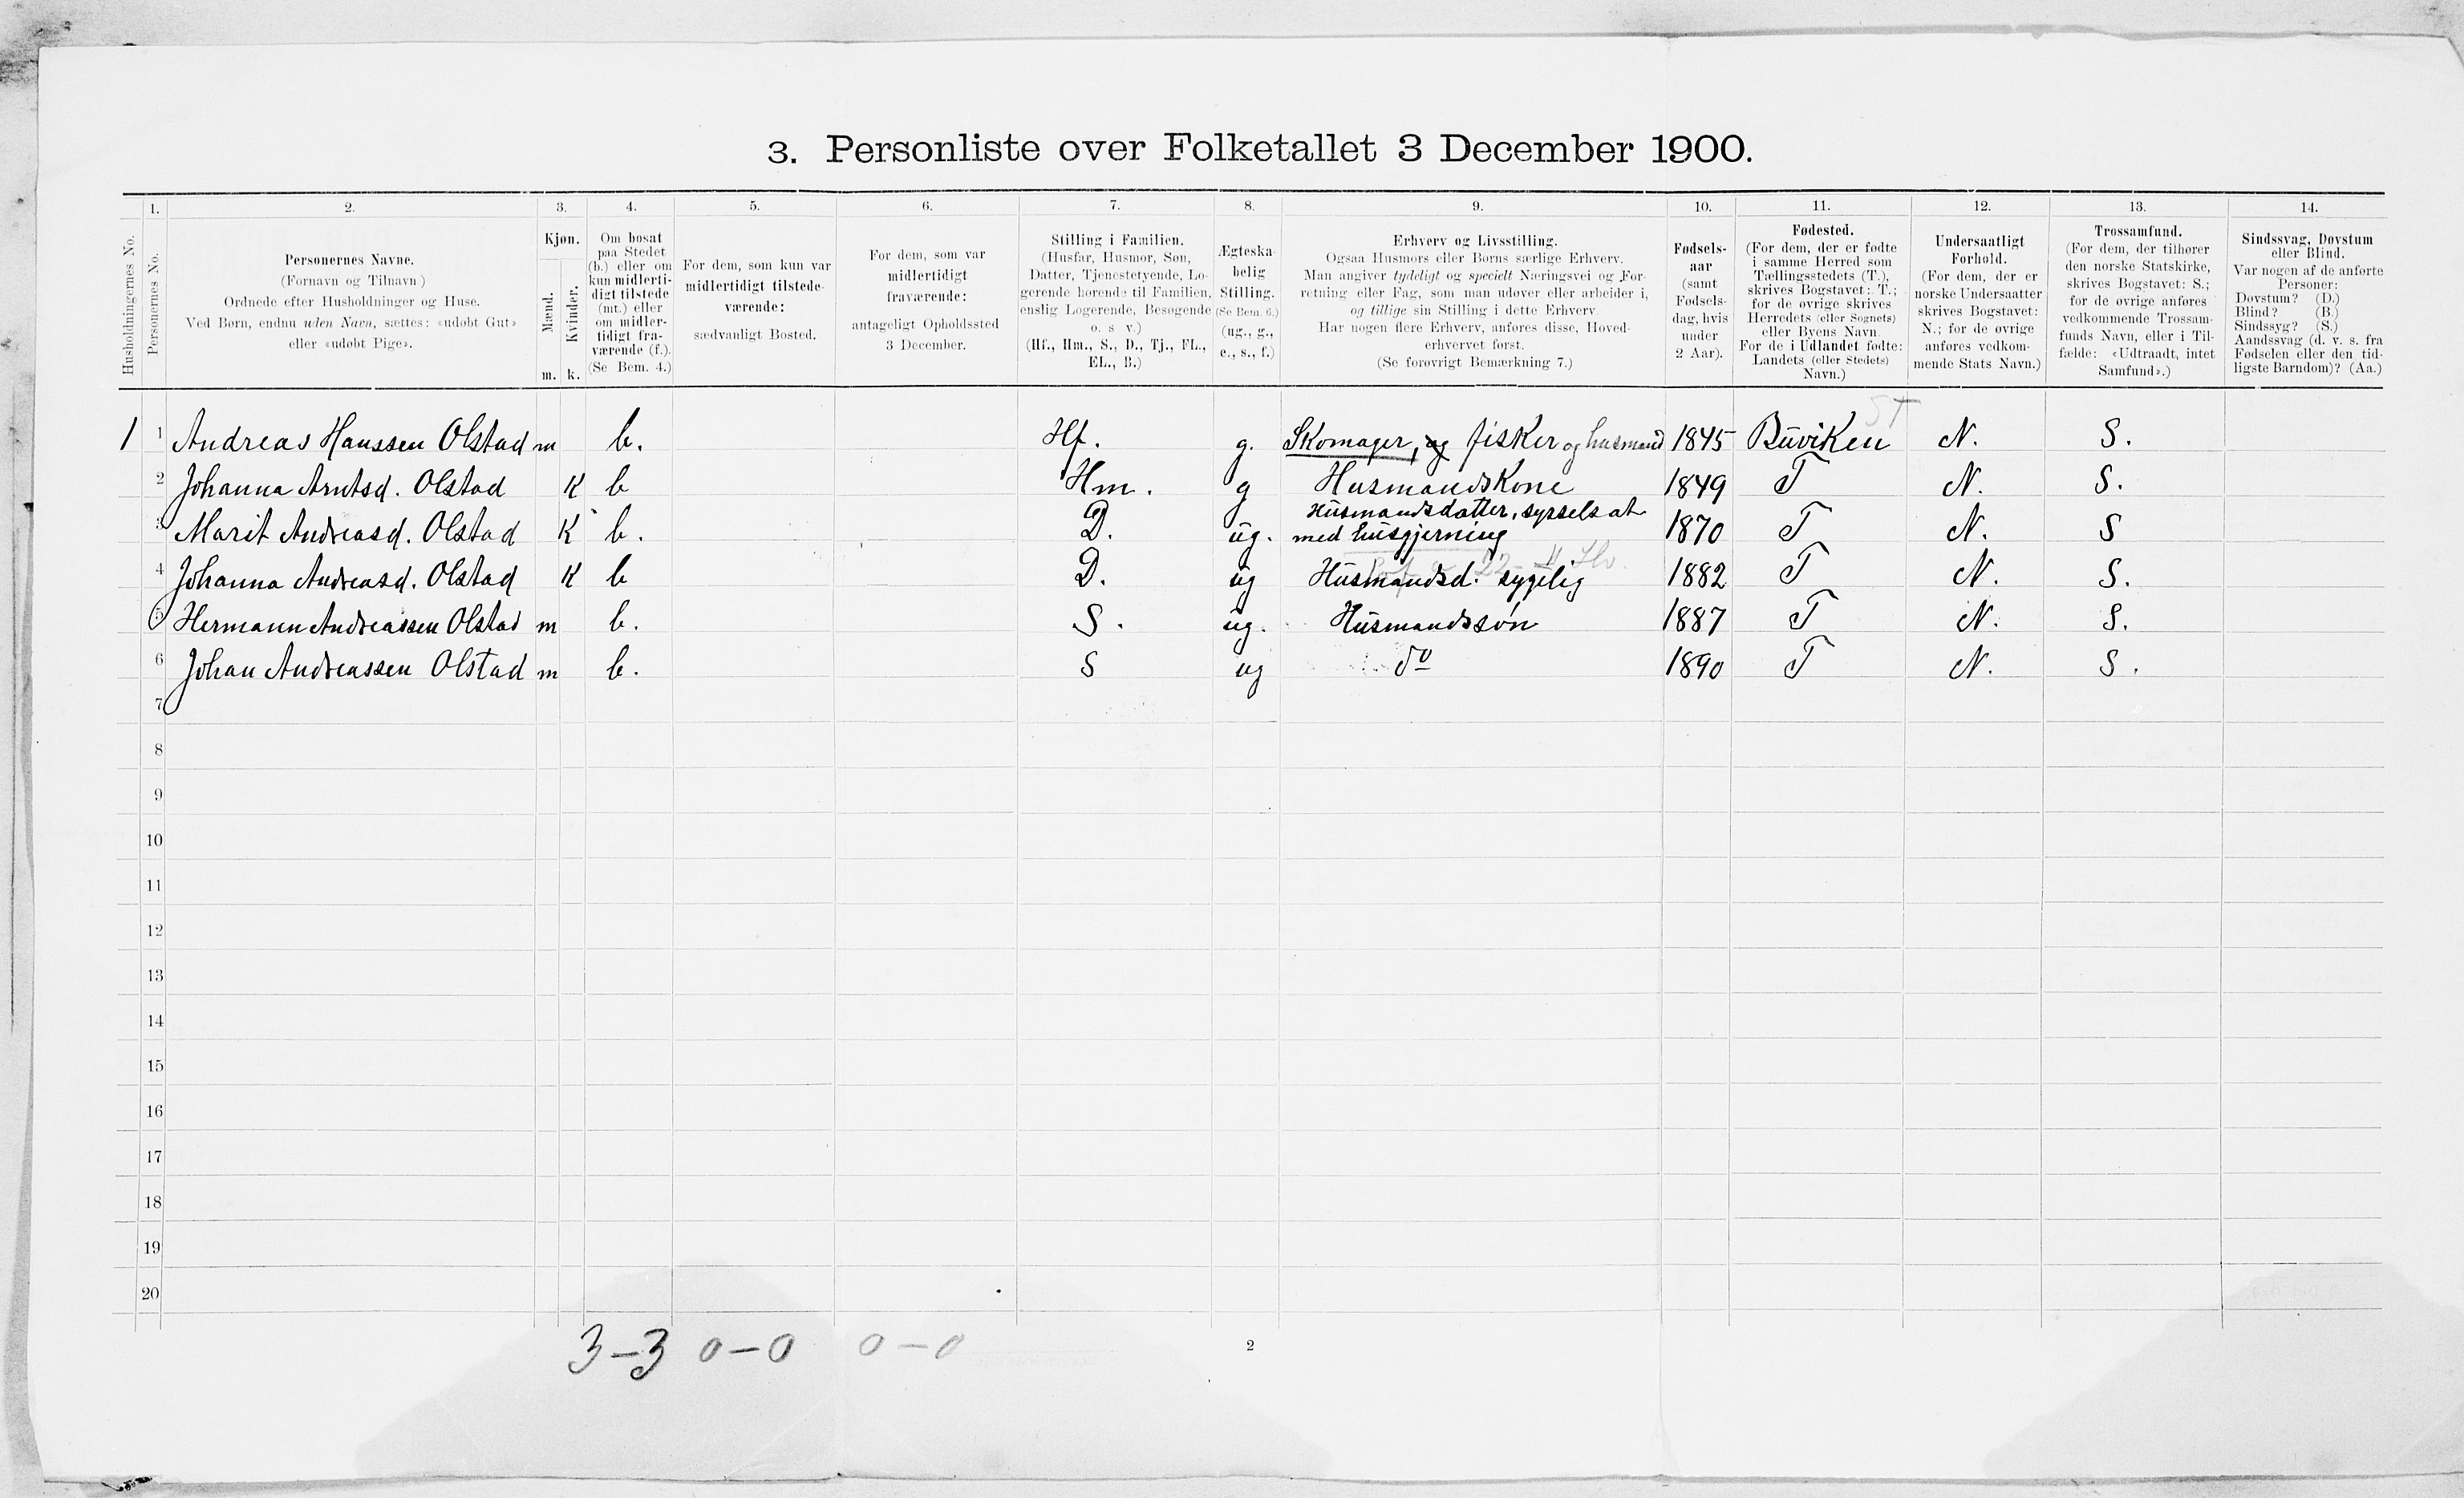 3. Personliste over Folketallet 3 December 1900.
1. 2. 3. 4. 5. 6. 7. 8. 9. 10. 11. 12. 13. 14.
Husholdningernes No.
Personernes No.
Personernes Navne.
(Fornavn og Tilnavn)
Ordnede efter Husholdninger og Huse.
Ved Børn, endnu uden Navn, sættes: «udøbt Gut»
eller «udøbt Pige».
Kjøn.
Mænd.
Kvinder.
m. k.
Om bosat
paa Stedet
(b.) eller om
kun midlerti-
digt tilstede
(mt.) eller
om midler-
tidigt fra-
værende (f.).
(Se Bem. 4.)
For dem, som kun var
midlertidigt tilstede-
værende:
sædvanligt Bosted.
For dem, som var
midlertidigt
fraværende:
antageligt Opholdssted
3 December.
Stilling i Familien.
(Husfar, Husmor, Søn,
Datter, Tjenestetyende, Lo-
gerende hørende til Familien,
enslig Logerende, Besøgende
o. s v.)
(Hf., Hm., S., D., Tj., FL.,
EL., B.)
Ægteska-
belig
Stilling.
(Se Bem. 6.)
(ug., g.,
e., s., f.)
Erhverv og Livsstilling.
Ogsaa Husmors eller Børns særlige Erhverv.
Man angiver tydeligt og specielt Næringsvei og For-
retning eller Fag, som man udøver eller arbeider i,
og tillige sin Stilling i dette Erhverv.
Har nogen flere Erhverv, anføres disse, Hoved-
erhvervet først.
(Se forøvrigt Bemærkning 7.)
Fødsels-
aar
(samt
Fødsels-
dag, hvis
under
2 Aar).
Fødested.
(For dem, der er fødte
i samme Herred som
Tællingsstedets (T.),
skrives Bogstavet: T.;
for de øvrige skrives
Herredets (eller Sognets)
eller Byens Navn.
For de i Udlandet fødte:
Landets (eller Stedets)
Navn.)
Undersaatligt
Forhold.
(For dem, der er
norske Undersaatter
skrives Bogstavet:
N.; for de øvrige
anføres vedkom-
mende Stats Navn.)
Trossamfund.
(For dem, der tilhører
den norske Statskirke,
skrives Bogstavet: S.;
for de øvrige anføres
vedkommende Trossam-
funds Navn, eller i Til-
fælde: «Udtraadt, intet
Samfund».)
Sindssvag, Døvstum
eller Blind.
Var nogen af de anførte
Personer:
Døvstum? (D.)
Blind? (B.)
Sindssyg? (S.)
Aandssvag (d. v. s. fra
Fødselen eller den tid-
ligste Barndom)? (Aa.)
ST
1 1 Andreas Hanssen Olstad m b. Hf. g. Skomager, og fisker og husmand 1845 Büviken N. S.
2 Johanna Arntsd. Olstad K b Hm. g Husmandskone 1849 T N. S.
3 Marit Andreasd. Olstad K b. D. ug. Husmandsdatter, sysselsat
med husgjerning 1870 T N. S
4 Johanna Andreasd. Olstad K b D. ug Husmandsd. sygelig 1882 T N. S.
5 Hermann Andreassen Olstad m b. S. ug. Husmandssøn 1887 T N. S.
6 Johan Andreassen Olstad m b. S ug do 1890 T N. S.
7
8
9
10
11
12
13
14
15
16
17
18
19
20
3-3 0-0 0-0
2